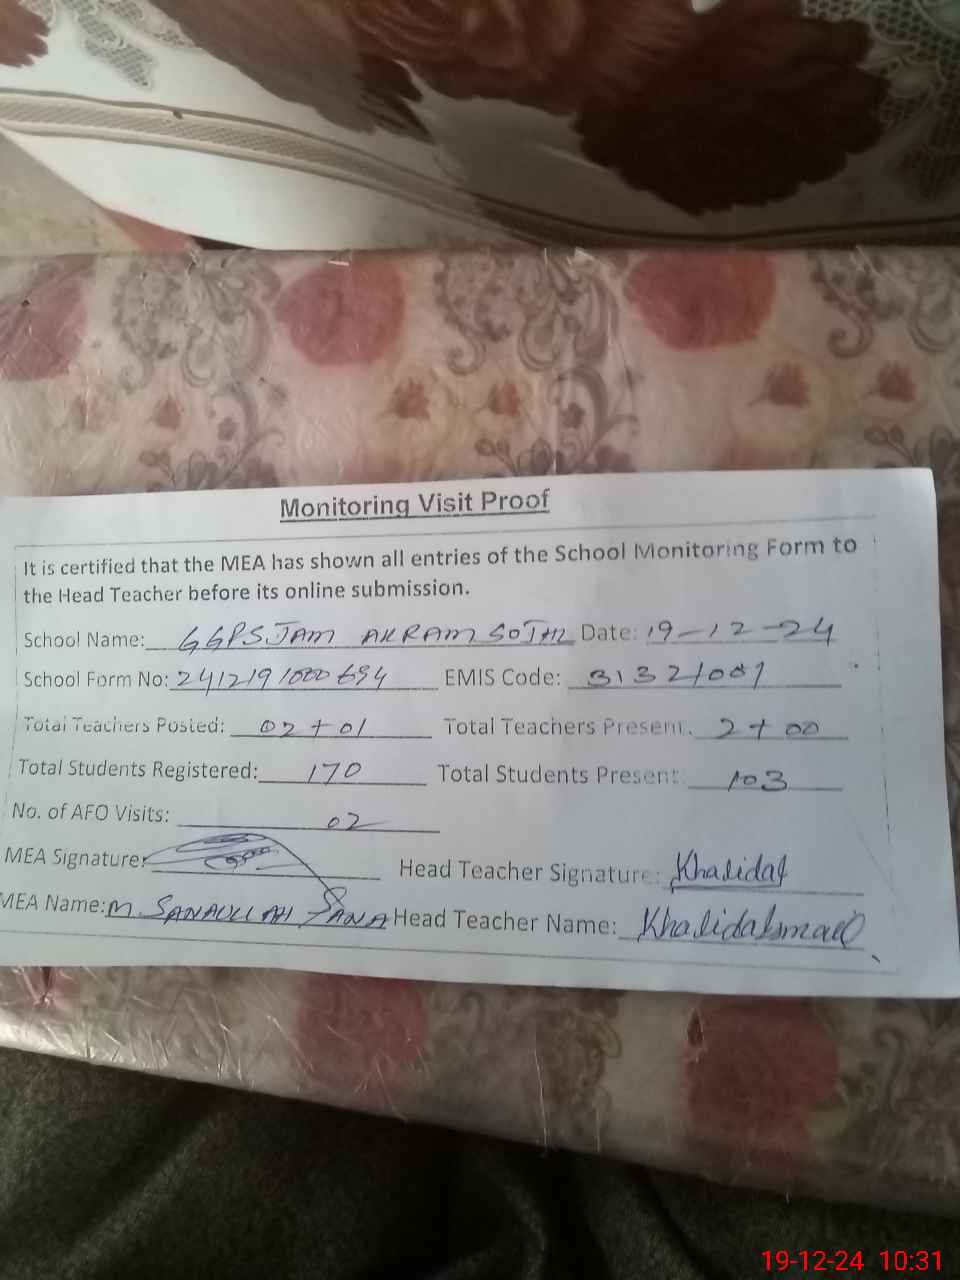 Monitoring Visit Proof
It is certified that the MEA has shown all entries of the School Monitoring Form to
the Head Teacher before its online submission.
School Name: GGPS JAM AKRAM Date: 19-12-24
School Form No: 2412191000694 EMIS Code: 31321001
Total Teachers Posted: 02+01 Total Teachers Present. 2+00
Total Students Registered: 170 Total Students Present: 103
No. of AFO Visits: 02
MEA Signature: Head Teacher Signature: Khalida
MEA Name: M. SANAULLAH Head Teacher Name: Khalida Ismail
19-12-24 10:31